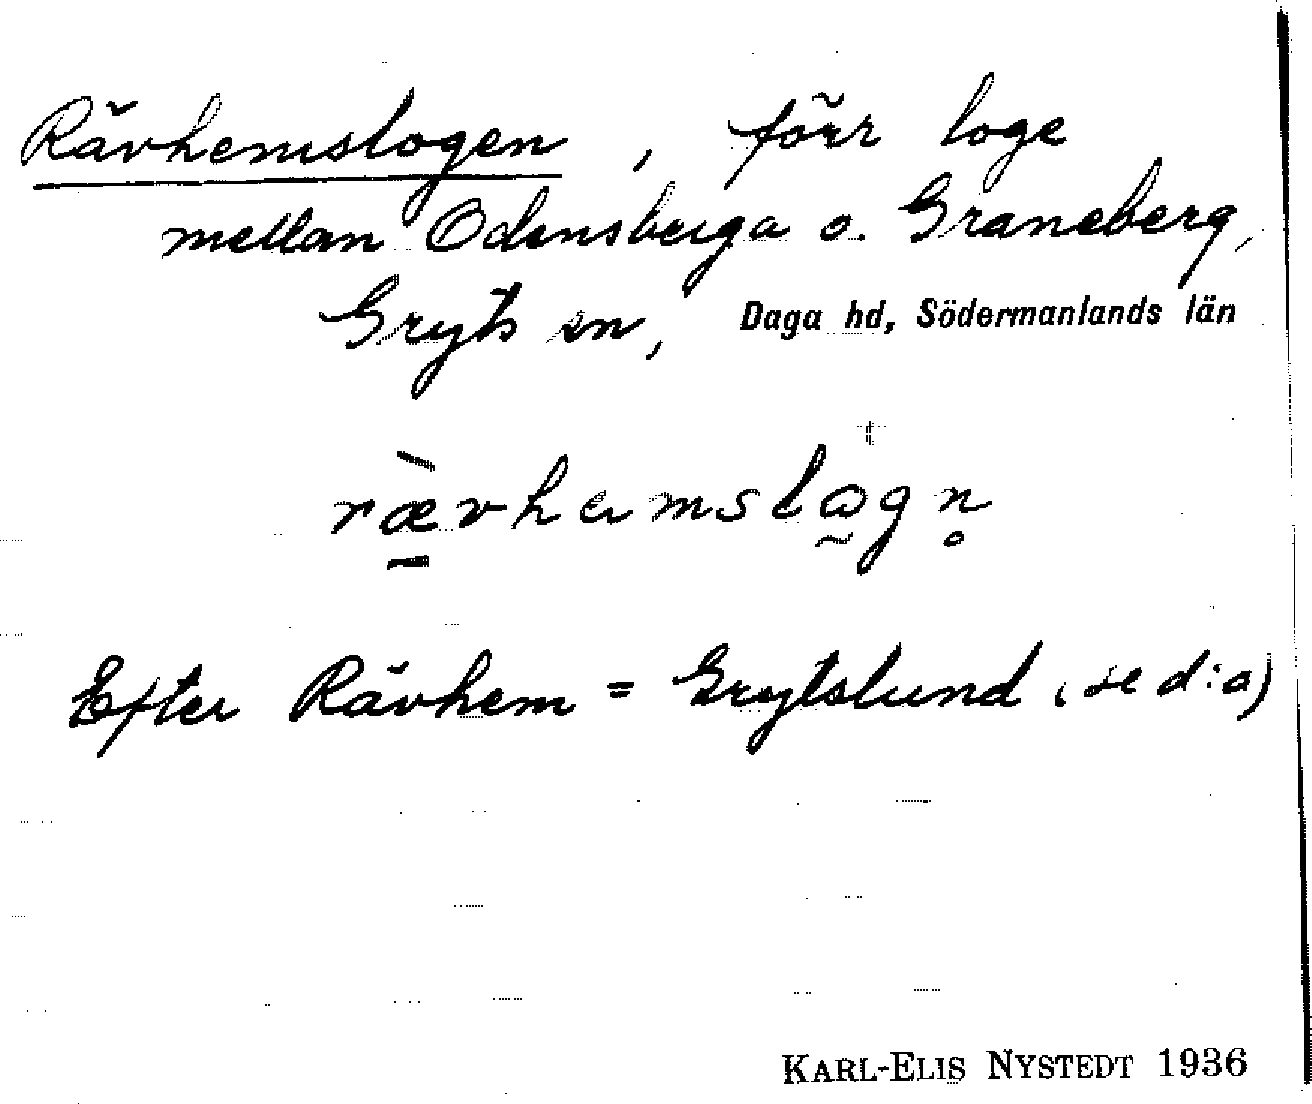 Rävhemslogen, förr loge
mellan Odensberga o. Graneberg,
Gryts sn, Daga hd, Södermanlands län
rævhemslogn
Efter Rävhem = Grytslund (se d:a)
KARL-ELIS NYSTEDT 1936